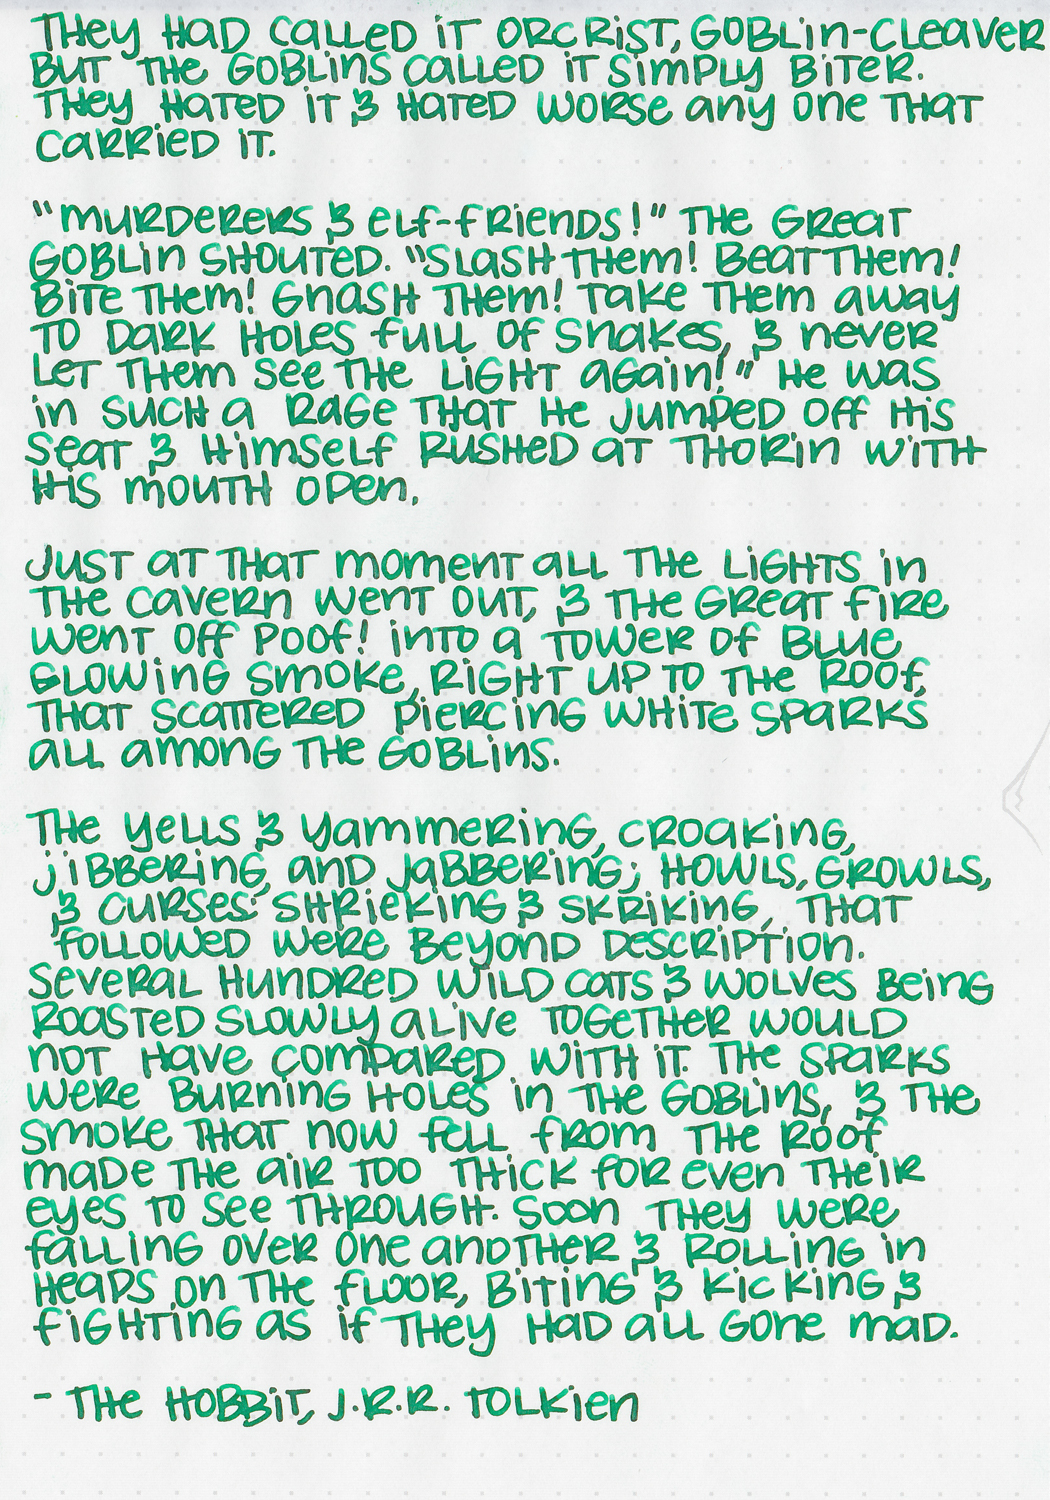 They had called it Orcrist, Goblin-Cleaver
but the goblins called it simply Biter.
They hated it & hated worse any one that
carried it.
"Murderers & elf-friends!" the Great
Goblin shouted. "Slash them! Beat them!
Bite them! Gnash them! Take them away
to dark holes full of snakes, & never
let them see the light again!" He was
in such a rage that he jumped off his
seat & himself rushed at Thorin with
his mouth open.
Just at that moment all the lights in
the cavern went out, & the great fire
went off poof! into a tower of blue
glowing smoke, right up to the roof,
that scattered piercing white sparks
all among the goblins.
The yells & yammering, croaking,
jibbering, and jabbering; howls, growls,
& curses; shrieking & skriking, that
followed were beyond description.
Several hundred wild cats & wolves being
roasted slowly alive together would
not have compared with it. The sparks
were burning holes in the goblins, & the
smoke that now fell from the roof
made the air too thick for even their
eyes to see through. Soon they were
falling over one another & rolling in
heaps on the floor, biting & kicking &
fighting as if they had all gone mad.
- The Hobbit, J.R.R. Tolkien